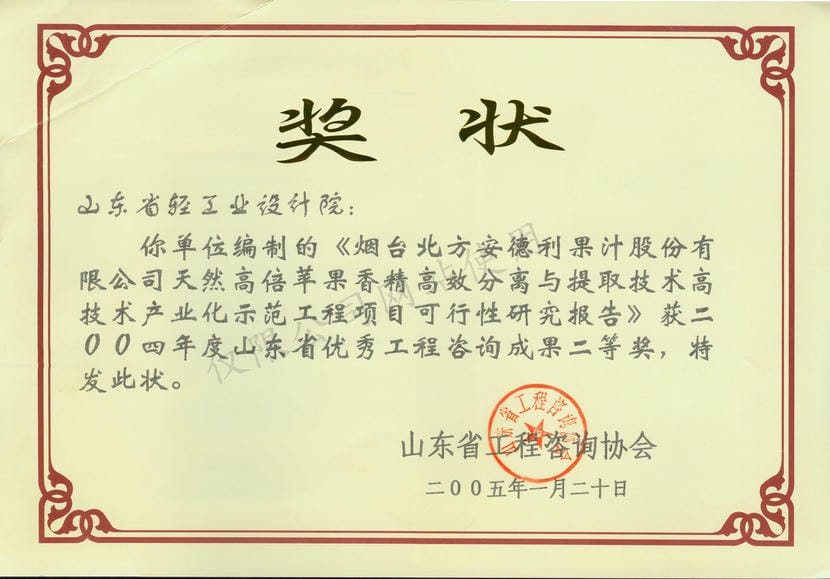 奖状
山东省轻工业设计院：
你单位编制的《烟台北方安德利果汁股份有
限公司天然高倍苹果香精高效分离与提取技术高
技术产业化示范工程项目可行性研究报告》获二
〇〇四年度山东省优秀工程咨询成果二等奖，特
发此状。
山东省工程咨询协会
山东省工程咨询协会
二〇〇五年一月二十日
仅限公司网站使用